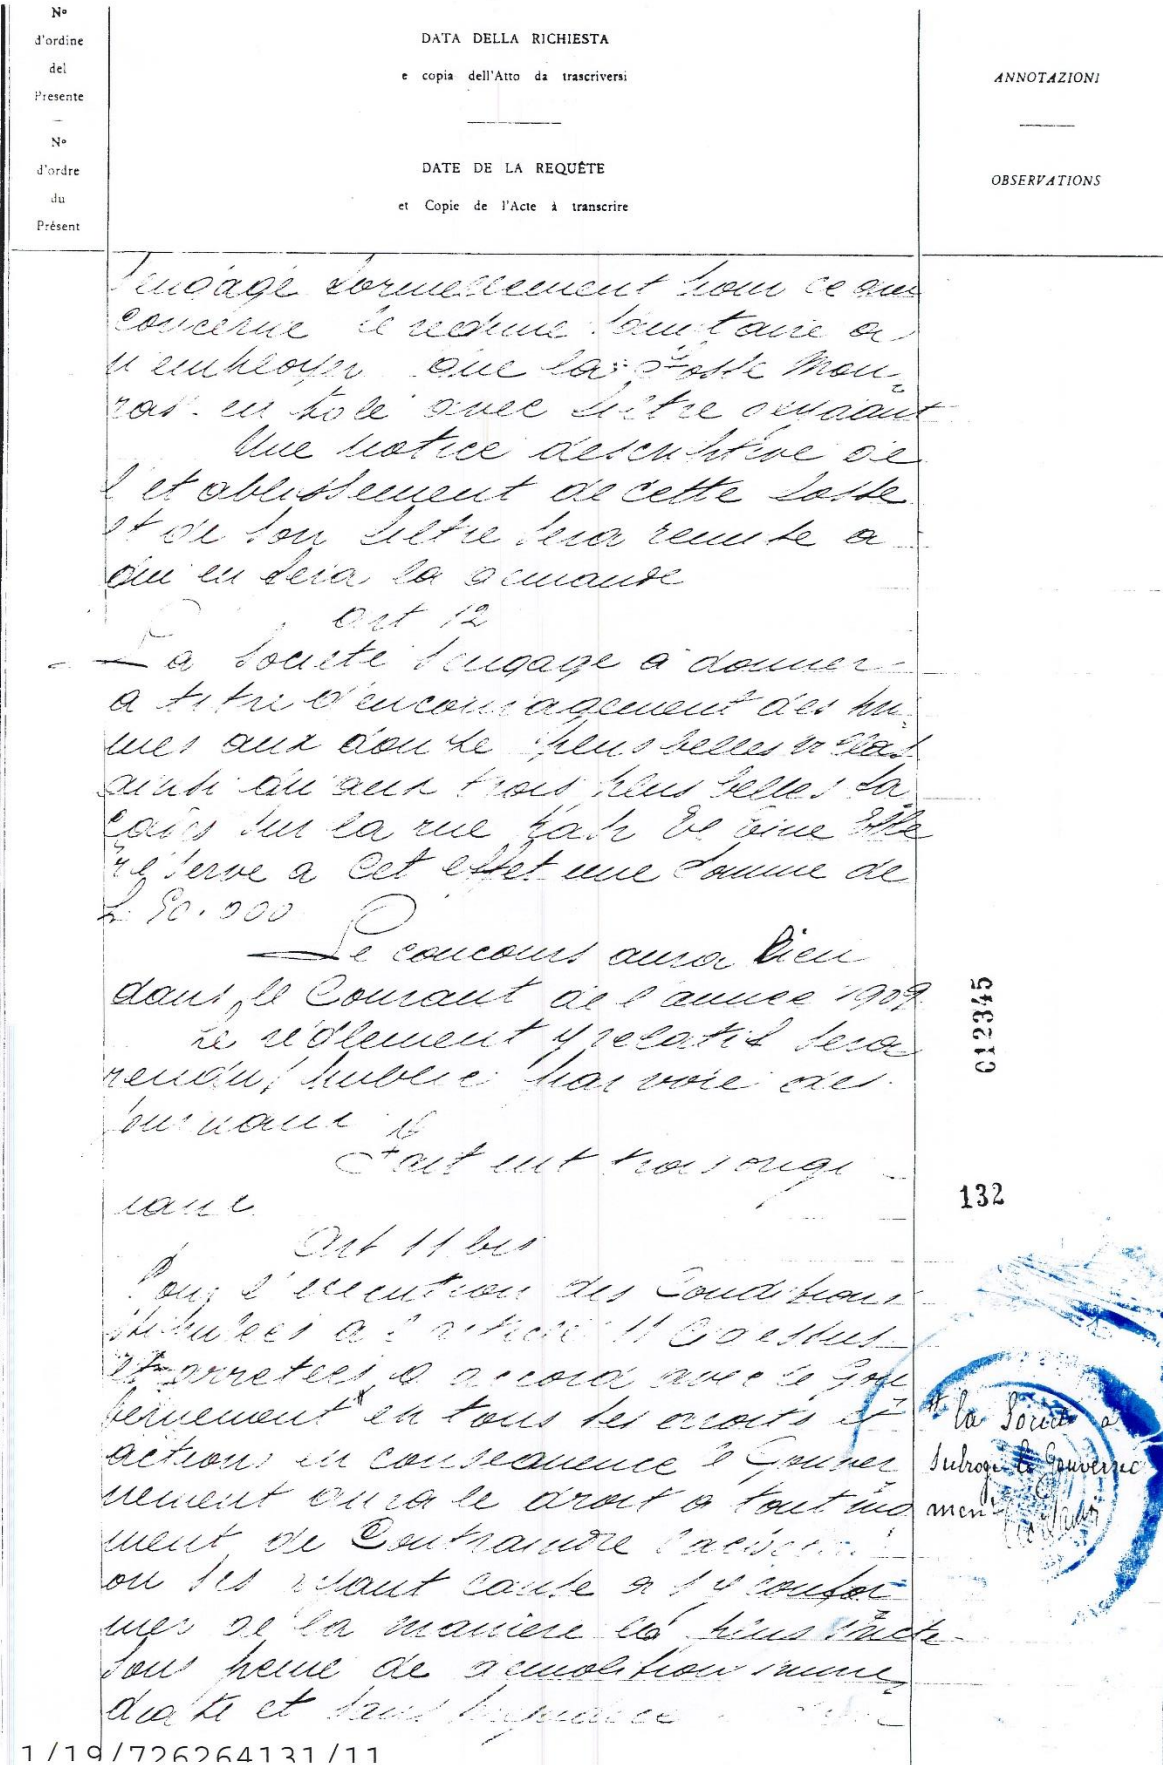 N°
d'ordine
del
Presente
N°
d'ordre
du
Présent
DATA DELLA RICHIESTA
e copia dell'Atto da trascriversi
DATE DE LA REQUÊTE
et Copie de l'Acte à transcrire
ANNOTAZIONI
OBSERVATIONS
s'engage formellement pour ce qui
concerne le regime sanitaire a
n'employer que la fosse Mou-
ras en tole avec filtre
Une notice descriptive de
l'etablissement de cette fosse
et de son filtre sera remise a
qui en fera la demande
art 12
La Société s'engage a donner
a titre d'encouragement des pri-
mes aux douze plus belles villas
ainsi qu'aux trois plus belles fa
çades sur la rue Kasr El Elle
reserve a cet effet une somme de
L 50.000
Le concours aura lieu
dans le Courant de l'année 1909
Le réglement y relatif sera
rendu public par voie des
journaux
Fait en trois origi
naux
Art 11 bis
Pour l'execution des Conditions
stipulées a l'article 11 Ci dessus
et arretees d'accord avec le Gou
vernement en tous ses droits et
actions en consequence le Gouver
nement aura le droit a tout mo
ment de Contraindre
ou ses ayant cause a s'y confor
mer de la maniere la plus stricte
sous peine de demolition imme
diate et sans prejudice
la Société a
subrogé le Gouverne
ment
012345
132
1/19/726264131/11